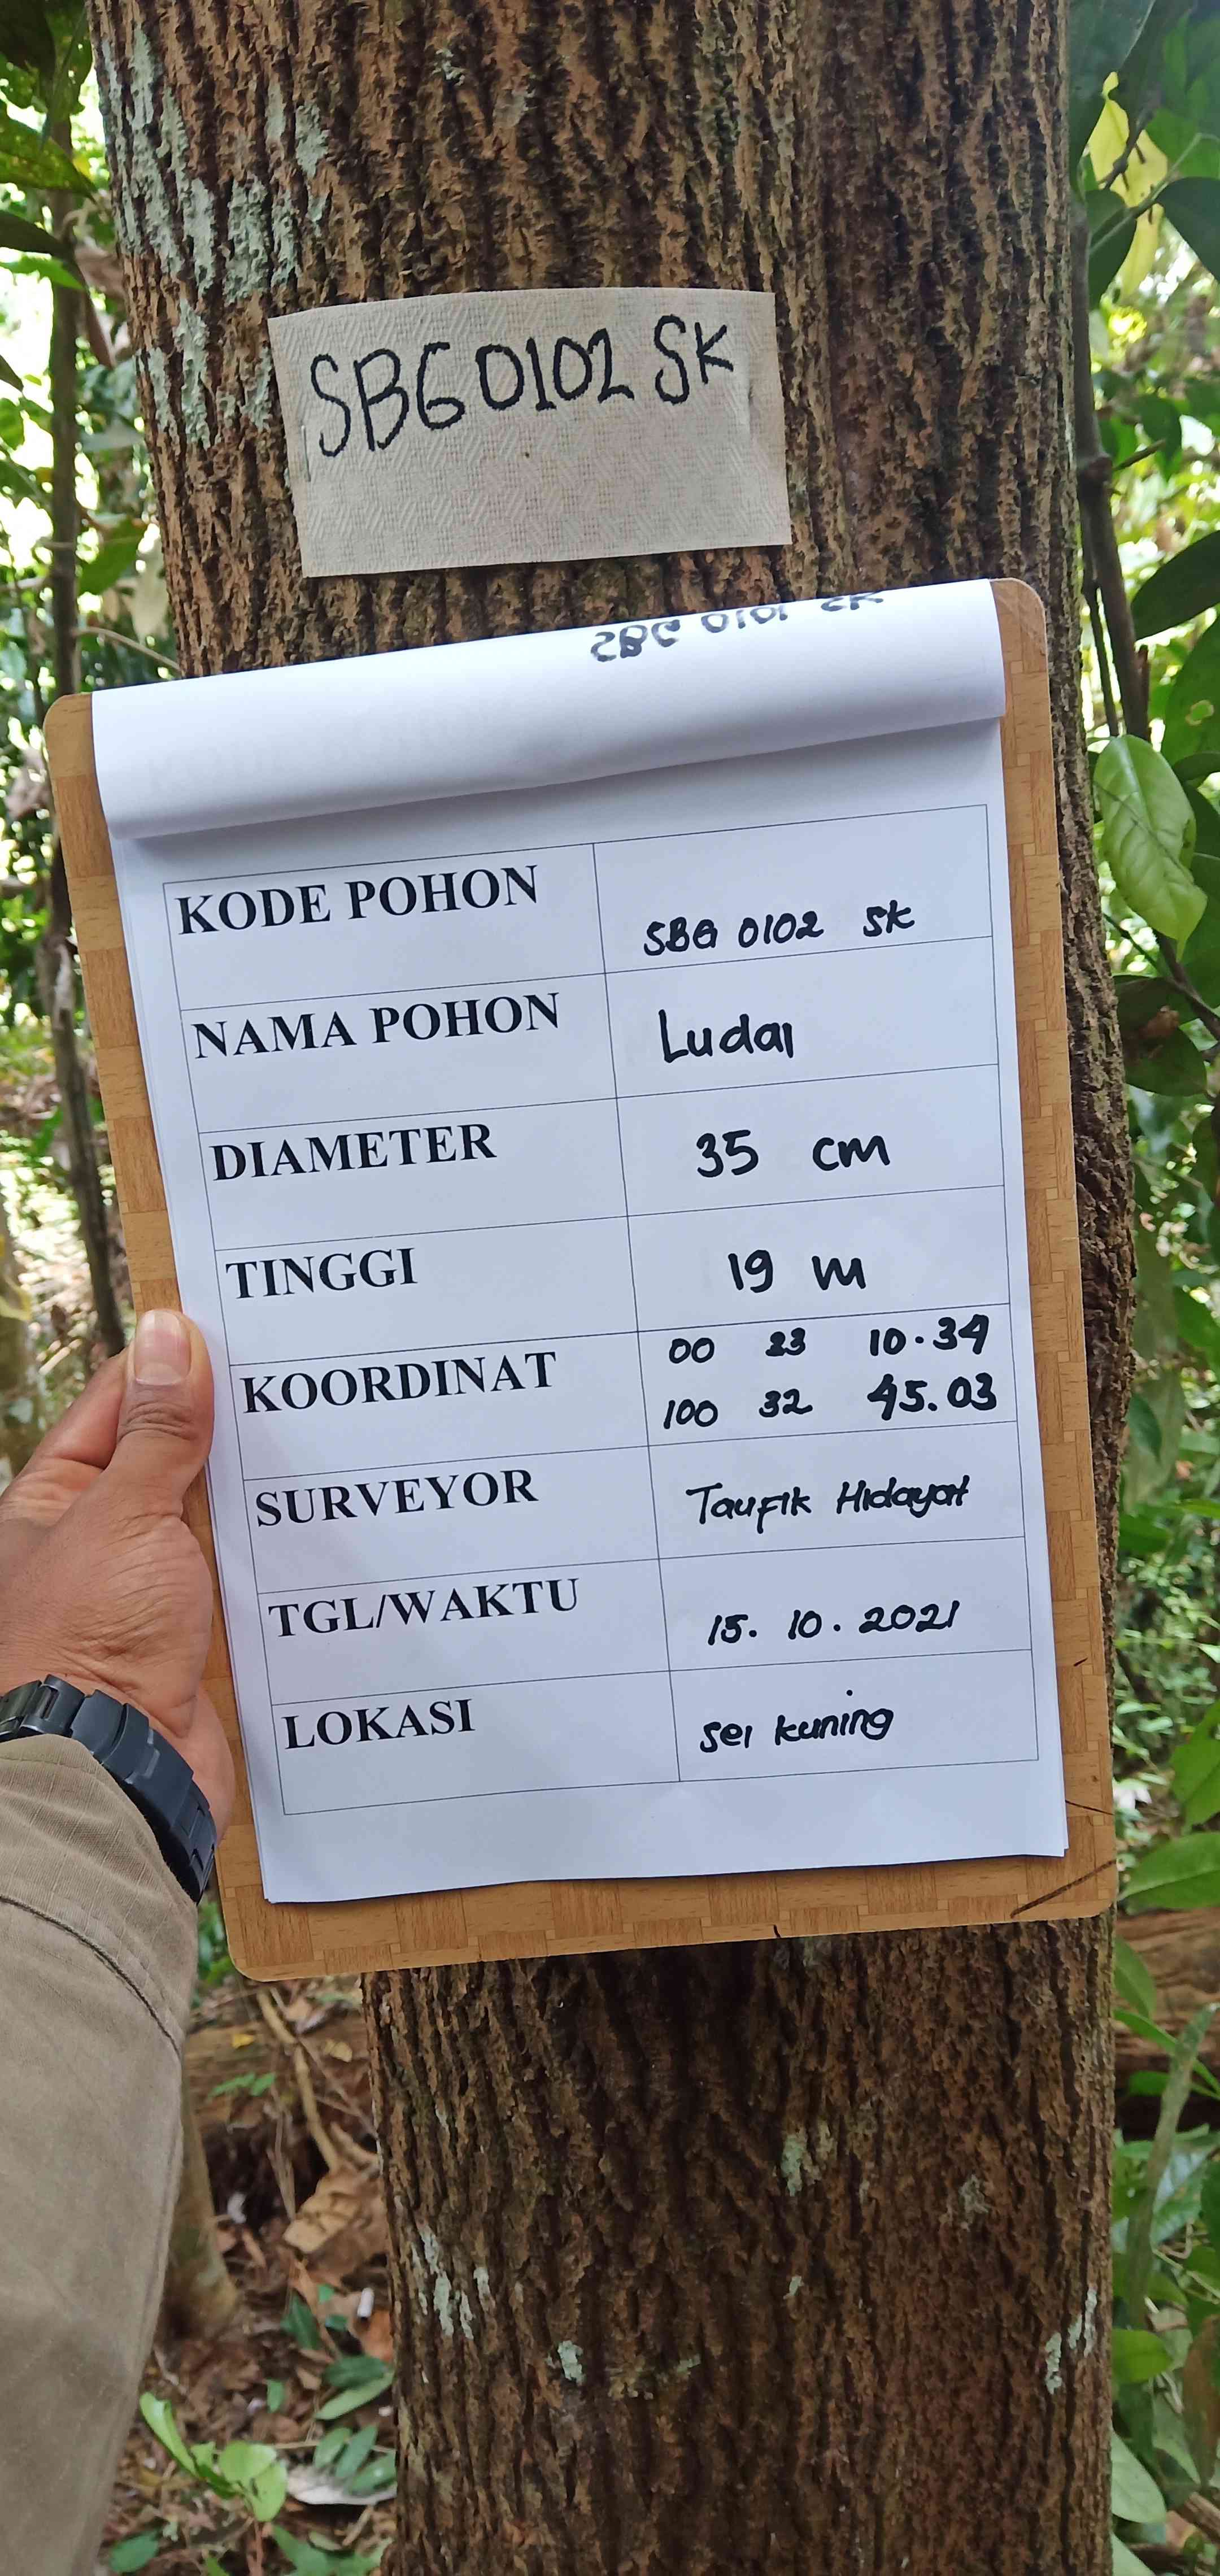 SBG 0102 SK
SBG 0101 SK
KODE POHON SBG 0102 SK
NAMA POHON Ludai
DIAMETER 35 cm
TINGGI 19 m
KOORDINAT 00 23 10.34
100 32 45.03
SURVEYOR Taufik Hidayat
TGL/WAKTU 15. 10. 2021
LOKASI Sei kuning